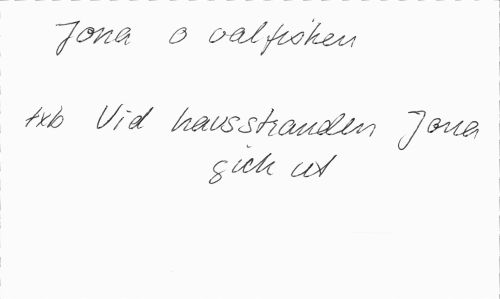 Jona o valfisken
txb Vid havsstranden Jona
gick ut